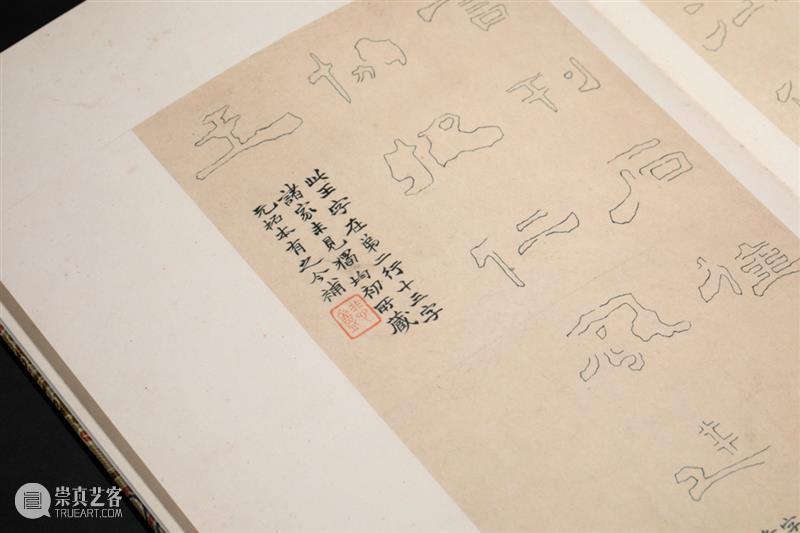 言刊石
协仁
王
此王字在第二行十三字
諸家未見獨均初所藏
元拓本有之今補
崇真艺客
TRUEART.COM